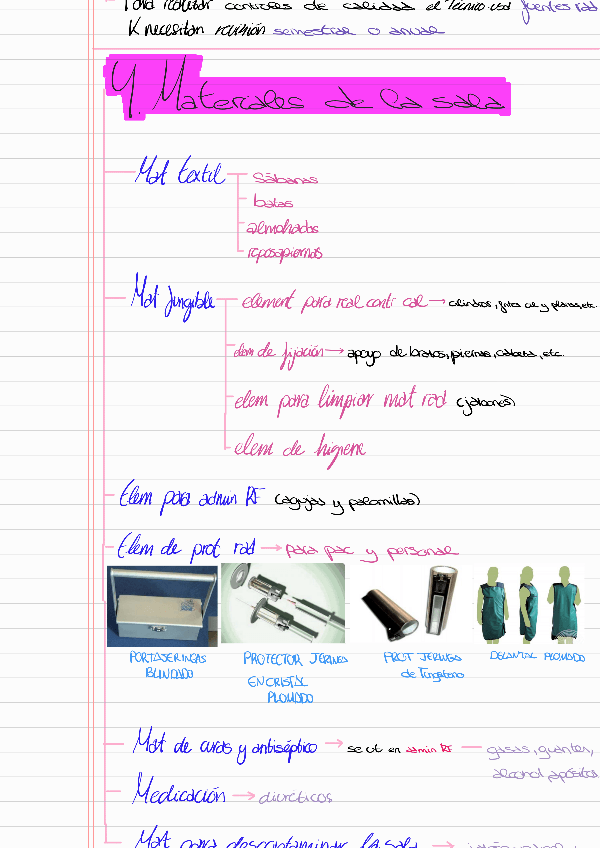 Para realizar controles de calidad el Técnico usa fuentes rad
K necesitan revisión semestral o anual
4. Materiales de la sala
Mat textil
Sábanas
batas
almohadas
reposapiernas
Mat fungible element para real contr cal → cilindros, jntes cal y planas, etc.
elem de fijación → apoyo de brazos, piernas, cabeza, etc.
elem para limpiar mat rad (jabones)
elem de higiene
Elem para admin RF (agujas y palomillas)
Elem de prot rad → para pac y personal
PORTAJERINGAS BLINDADO
PROTECTOR JERINGA EN CRISTAL PLOMADO
PROT JERINGA de Tungsteno
DELANTAL PLOMADO
Mat de curas y antiséptico → se ut en admin RF — gasas, guantes,
alcohol apósitos
Medicación → diuréticos
Mat para descontaminar la sala →